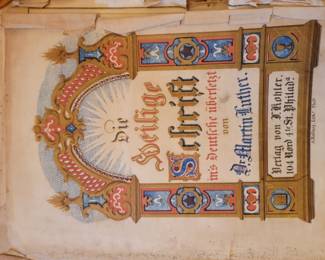 Die
Heilige
Schrift
ins Deutsche übersetzt
von
Dr. Martin Luther.
Verlag von J. Kohler,
104 Nord 4te St. Philada